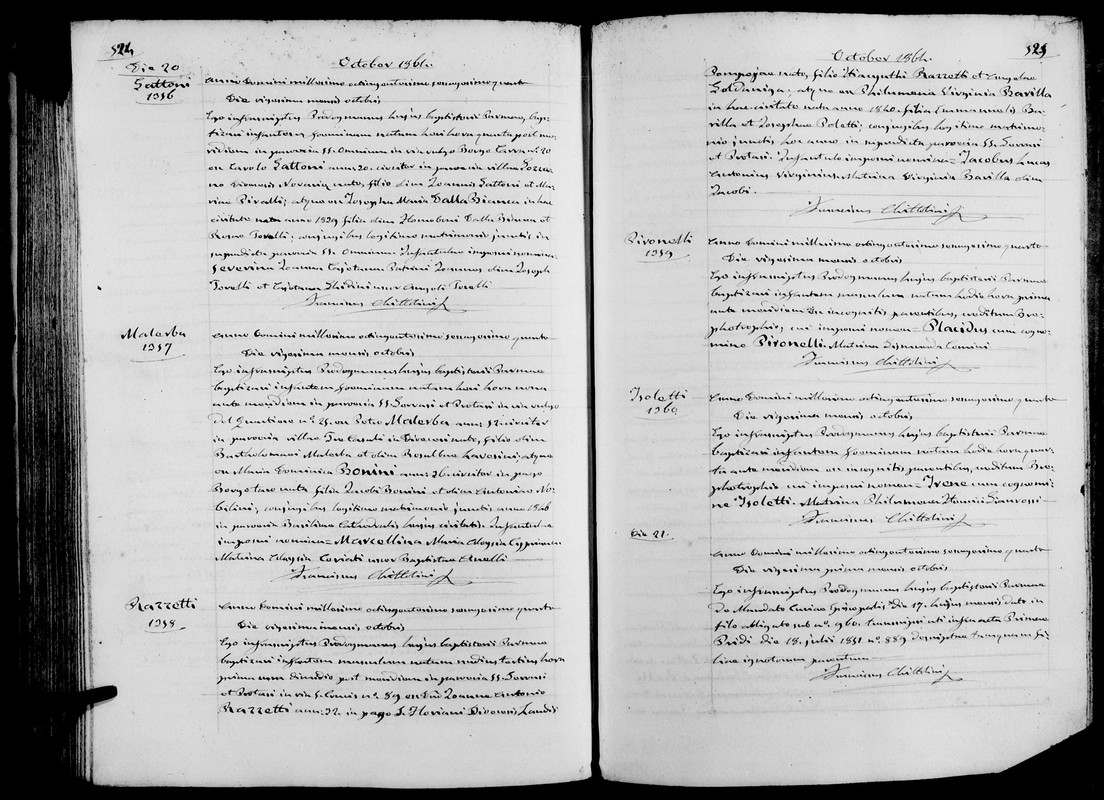 524
October 1864.
Die 20
Gattoni
1356
Anno Domini millesimo octingentesimo sexagesimo quarto
Die vigesima mensis octobris
Ego infrascriptus Prodogmanus hujus baptisterii Parmae, bap-
tizavi infantem foemineam natam heri hora quarta post me-
ridiem in paroecia SS. Omnium in via vulgo Borgo n. 20
ex Carolo Gattoni ann. 20. circiter in paroecia villae
nato, filio olim Joannis Gattoni et Ma-
atque ex Josepha Maria Dalla Bianca in hac
civitate nata anno 1829 filia olim Homoboni Dalla Bianca et
Rosae Torelli; conjugibus legitimo matrimonio junctis in
supradicta paroecia SS. Omnium. Infantulae imposui nomina=
Severina Joanna Cajetana Patrini Joannes olim Joseph
Torelli et Cajetana Ghidini uxor Angeli Torelli
Franciscus Chittolini
Malerba
1357
Anno Domini millesimo octingentesimo sexagesimo quarto
Die vigesima mensis octobris
Ego infrascriptus Prodogmanus hujus baptisterii Parmae
baptizavi infantem foemineam natam heri hora nona
ante meridiem in paroecia SS. Gervasi et Protasi in via vulgo
Del Quartiere n. 25. ex Petro Malerba ann. circiter
in paroecia villae Tre Casali in Dioecesi nato, filio olim
Bartholomaei Malerba et olim Rosalbae atque
ex Maria Dominica Bonini ann. 26 circiter in pago
Borgotaro nata filia Jacobi Bonini et olim Antoniae No-
belini; conjugibus legitimo matrimonio junctis anno
in paroecia Basilicae Cathedralis hujus civitatis. Infantulae
imposui nomina= Marcellina Maria Aloysia Cypriana
Matrina Aloysia uxor Baptistae
Franciscus Chittolini
Razzetti
1358
Anno Domini millesimo octingentesimo sexagesimo quarto
Die vigesima mensis octobris
Ego infrascriptus Prodogmanus hujus baptisterii Parmae
baptizavi infantem masculum natum hora
prima cum dimidio post meridiem in paroecia SS. Gervasi
et Protasi in via S. n. 89 ex Joanne Antonio
Razzetti ann. 32 in pago S. Floriani Dioecesis Laudis
525
October 1864.
Pompejae nato, filio Hiacynthi Razzetti et Angelae
Soldaniga; atque ex Philumena Virginia Barilla
in hac civitate nata anno 1840. filia Emmanuelis Ba-
rilla et Josephae Poletti; conjugibus legitimo matrimo-
nio junctis hoc anno in supradicta paroecia SS. Gervasi
et Protasi. Infantulo imposui nomina= Jacobus Lucas
Antonius Virginius. Matrina Virginia Barilla olim
Jacobi.
Franciscus Chittolini
Pironelli
1359
Anno Domini millesimo octingentesimo sexagesimo quarto
Die vigesima mensis octobris
Ego infrascriptus Prodogmanus hujus baptisterii Parmae
baptizavi infantem masculum natum hodie hora prima
ante meridiem ex incognitis parentibus, redditum Bre-
photrophio, cui imposui nomen= Placidus cum cogno-
mine Pironelli. Matrina
Franciscus Chittolini
Isoletti
1360
Anno Domini millesimo octingentesimo sexagesimo quarto
Die vigesima mensis octobris
Ego infrascriptus Prodogmanus hujus baptisterii Parmae
baptizavi infantem foemineam natam hodie hora quar-
ta ante meridiem ex incognitis parentibus, redditam Bre-
photrophio cui imposui nomen= Irene cum cognomi-
ne Isoletti. Matrina Philumena
Franciscus Chittolini
Die 21.
Anno Domini millesimo octingentesimo sexagesimo quarto
Die vigesima prima mensis octobris
Ego infrascriptus Prodogmanus hujus baptisterii Parmae
De Mandato Curiae Episcopalis die 17. hujus mensis dato in
filo allegato sub n. 960. transcripsi uti infra acta
die 18. julii 1851 n. 889 descripta tamquam fi-
liae ignotorum parentum
Franciscus Chittolini